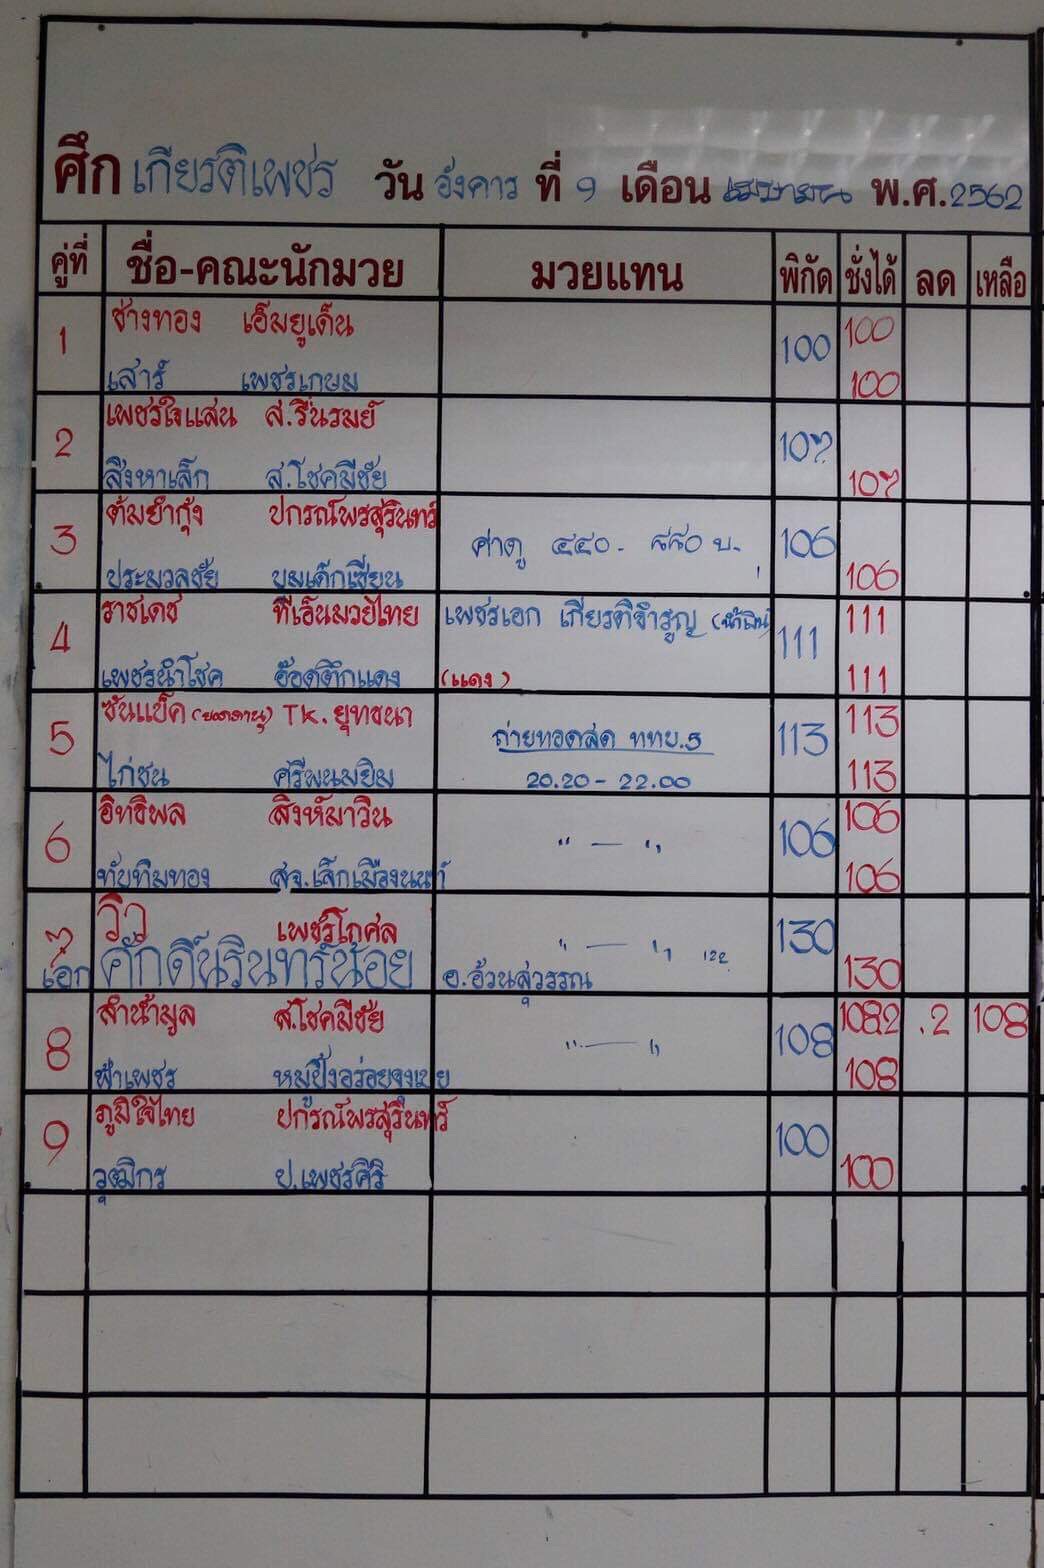 ศึก เกียรติเพชร วัน อังคาร ที่ 9 เดือน เมษายน พ.ศ.2562
คู่ที่ ชื่อ-คณะนักมวย มวยแทน พิกัด ชั่งได้ ลด เหลือ
1 ช่างทอง เอ็มยูเด็น 100 100
เสาร์ เพชรเกษม 100
2 เพชรใจแสน ส.รินรมย์ 107
สิงหาเล็ก ส.โชคมีชัย 107
3 ต้มยำกุ้ง ปกรณ์พรสุรินทร์ ค่าดู ๔๔๐. บ. 106
ประมวลชัย บูมเด็กเซียน 106
4 ราชเดช ทีเอ็นมวยไทย เพชรเอก เกียรติจำรูญ 111 111
เพชรนำโชค อ๊อดตึกแดง (แดง) 111
5 ซันแบ็ค Tk.ยุทธนา ถ่ายทอดสด ททบ.5 113 113
ไก่ชน ศรีพนมยิม 20.20-22.00 113
6 อิทธิพล สิงห์มาวิน " — " 106 106
ทับทิมทอง สจ.เล็กเมืองนนท์ 106
7 วิว เพชรโกศล " — " 130
เอก ศักดิ์นรินทร์น้อย อ.อ้วนสุวรรณ 130
8 ลำน้ำมูล ส.โชคมีชัย " — " 108 108.2 .2 108
ฟ้าเพชร หมูปิ้งอร่อยจุงเบย 108
9 ภูมิใจไทย ปกรณ์พรสุรินทร์ 100
วุฒิกร ป.เพชรศิริ 100